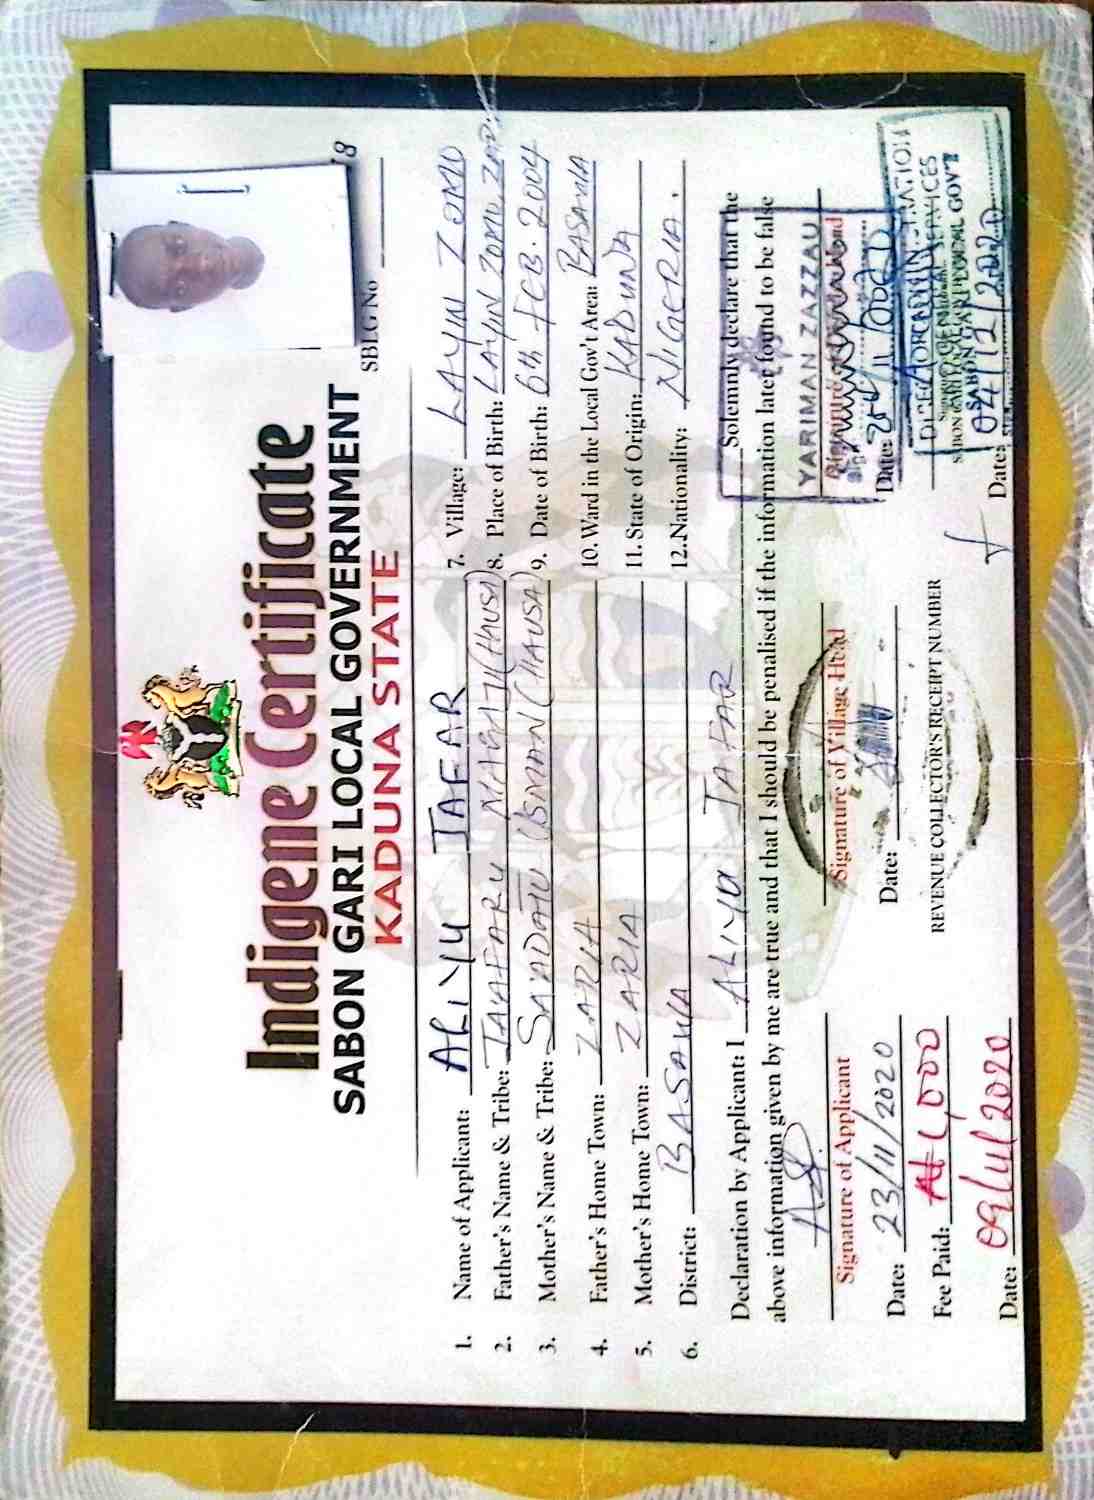 Indigene Certificate
SABON GARI LOCAL GOVERNMENT
KADUNA STATE
SBLG No
1. Name of Applicant: ALIYU JAFAR
2. Father's Name & Tribe: JA'AFARU MAGAJI (HAUSA)
3. Mother's Name & Tribe: SA'ADATU USMAN (HAUSA)
4. Father's Home Town: ZARIA
5. Mother's Home Town: ZARIA
6. District: BASAWA
7. Village: LAYIN ZOMO
8. Place of Birth: LAYIN ZOMO
9. Date of Birth: 6th FEB. 2004
10. Ward in the Local Gov't Area: BASAWA
11. State of Origin: KADUNA
12. Nationality: NIGERIA.
Declaration by Applicant: I ALIYU JAFAR Solemnly declare that the
above information given by me are true and that I should be penalised if the information later found to be false
Signature of Applicant
Date: 23/11/2020
Fee Paid: ₦1,000
Date:
Signature of Village Head
Date:
REVENUE COLLECTOR'S RECEIPT NUMBER
YARIMAN ZAZZAU
Date:
SABON GARI LOCAL GOV'T
Date: 04/12/2020